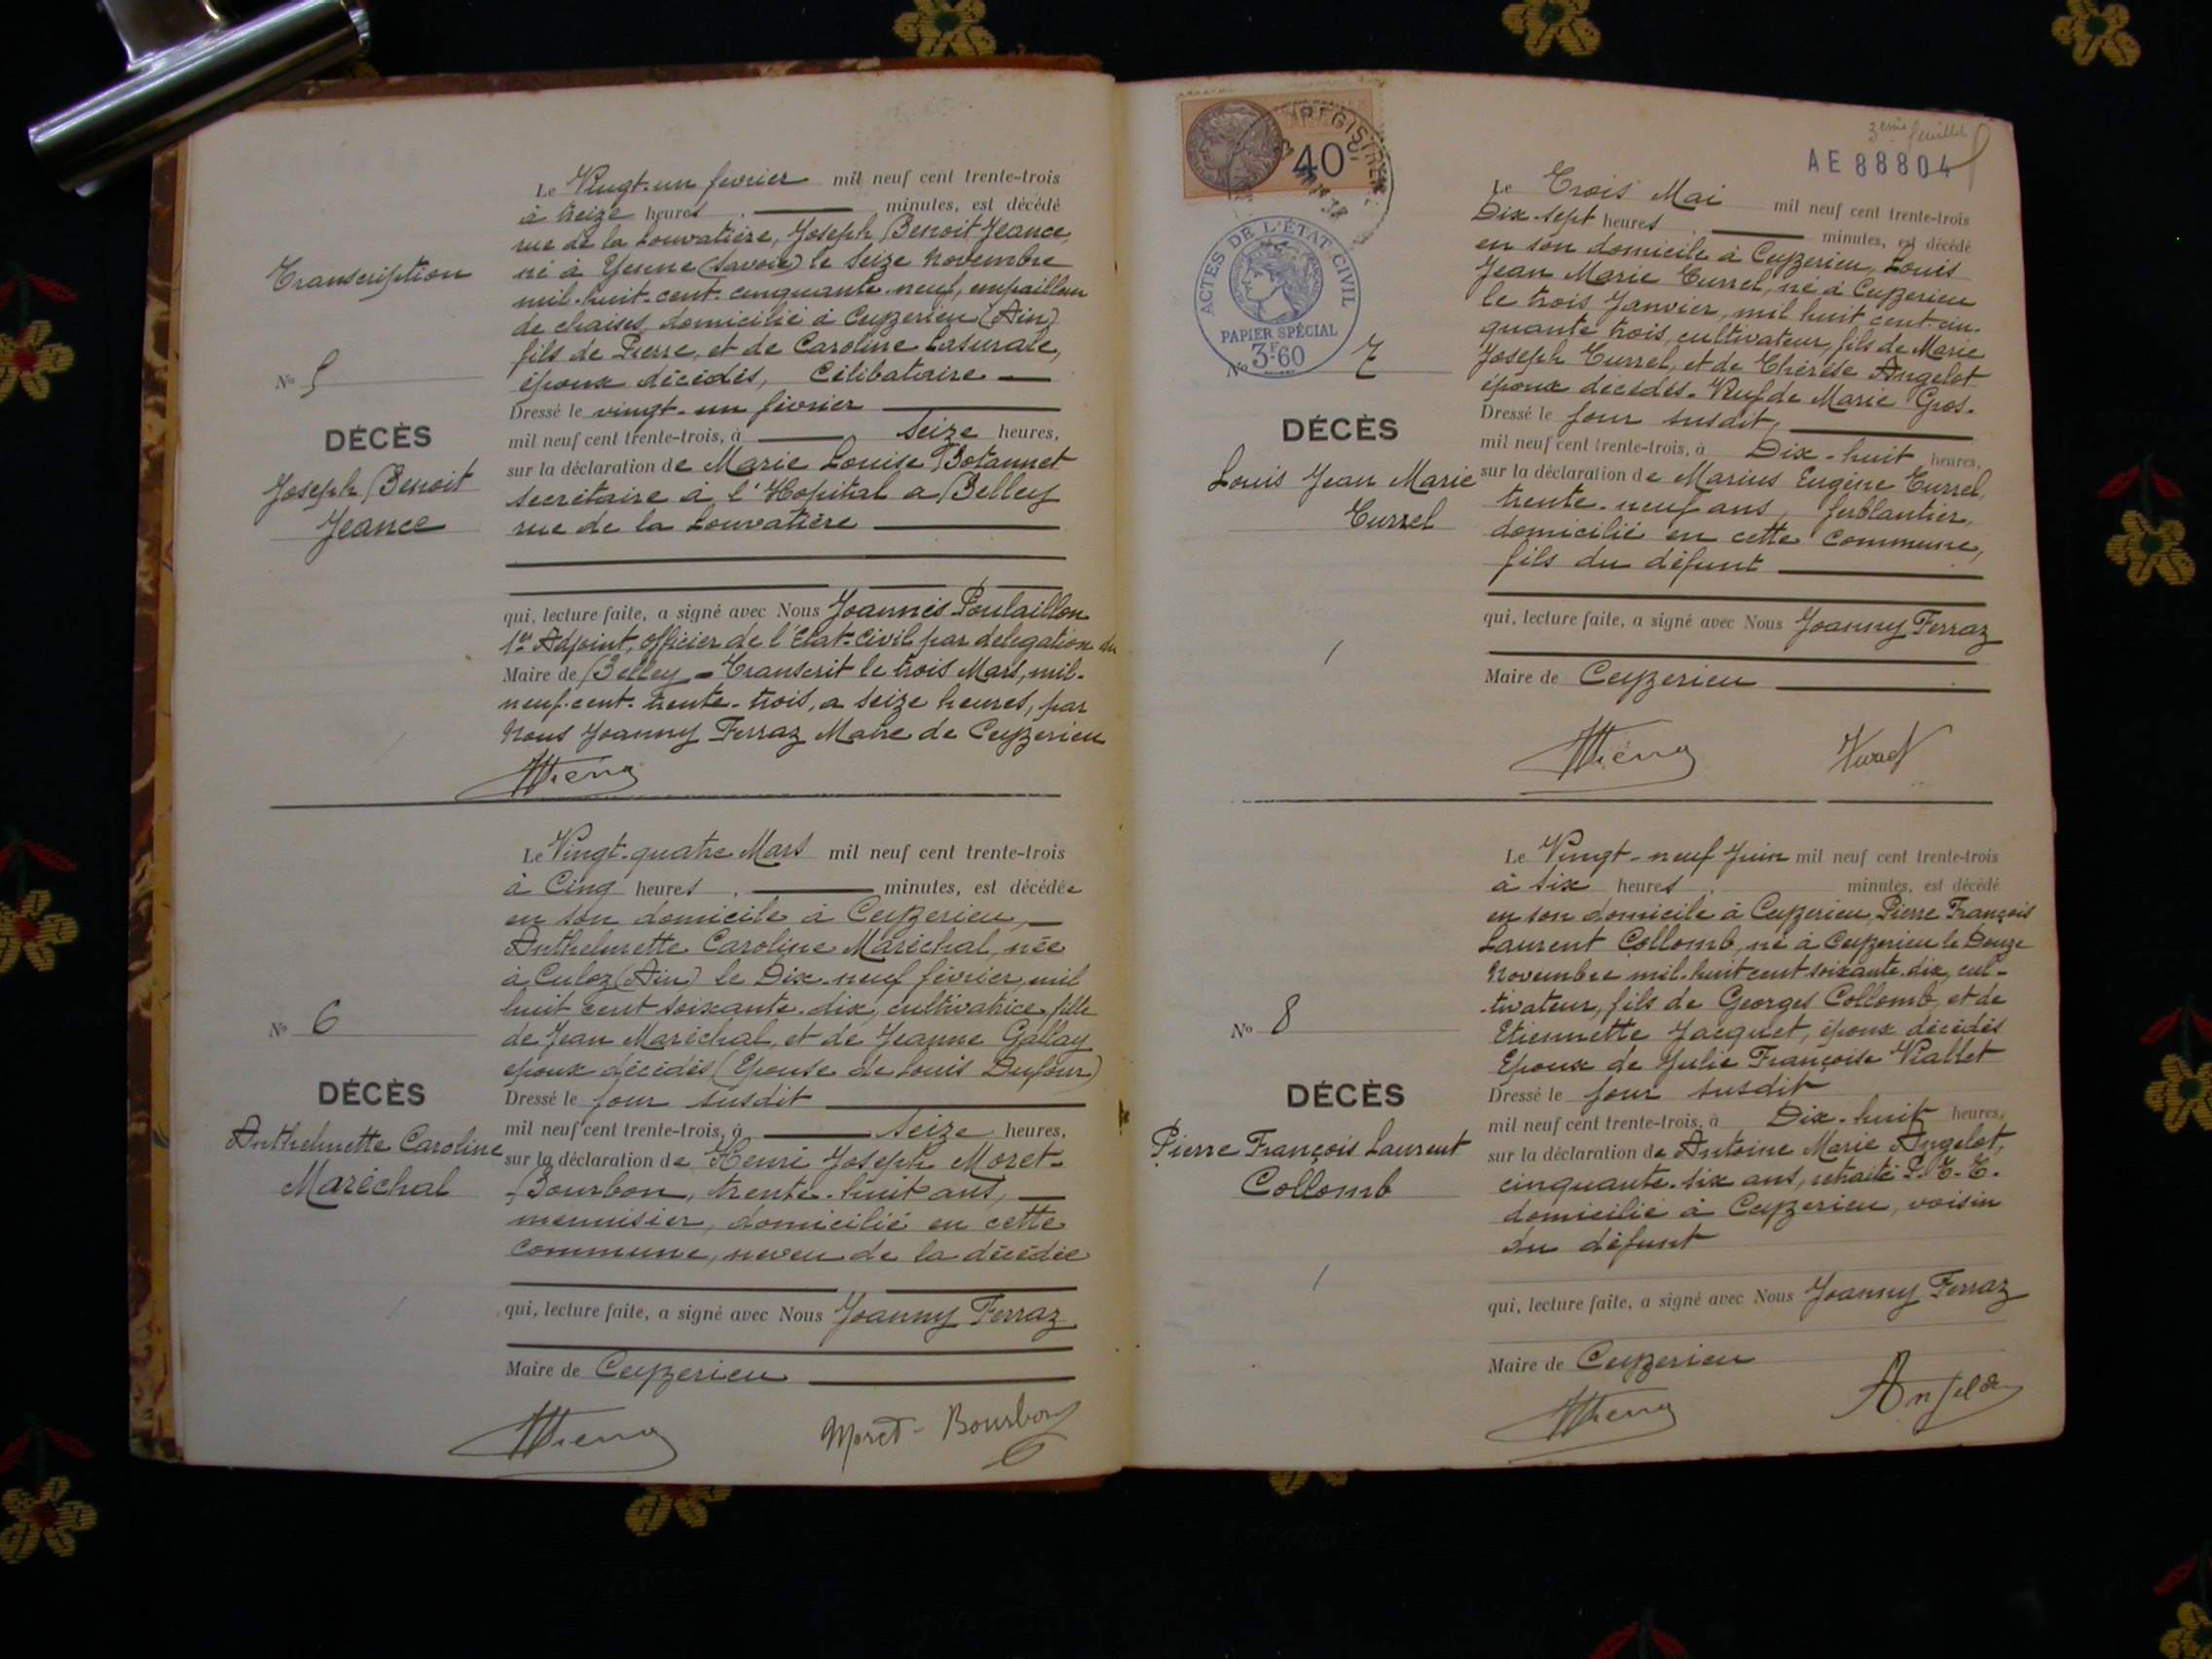 Transcription
Nº 5
DÉCÈS
Joseph Benoit
Jeance
Le Vingt-un février mil neuf cent trente-trois
à treize heures minutes, est décédé
rue de la Louvatière, Joseph Benoit Jeance,
né à Yenne (Savoie) le seize Novembre
mil-huit-cent-cinquante-neuf, empailleur
de chaises, domicilié à Ceyzerieu (Ain)
fils de Pierre, et de Caroline
époux décédés, Célibataire
Dressé le vingt-un février
mil neuf cent trente-trois, à seize heures,
sur la déclaration de Marie Louise Botannet
secrétaire à l'Hopital a Belley
rue de la Louvatière
qui, lecture faite, a signé avec Nous Joannès Poulaillon
1er Adjoint, officier de l'Etat-Civil par délégation du
Maire de Belley - Transcrit le trois Mars, mil-
neuf-cent-trente-trois, a seize heures, par
Nous Joanny Ferraz Maire de Ceyzerieu
Nº 6
DÉCÈS
Anthelmette Caroline
Maréchal
Le Vingt-quatre Mars mil neuf cent trente-trois
à Cinq heures minutes, est décédée
en son domicile à Ceyzerieu,
Anthelmette Caroline Maréchal, née
à Culoz (Ain) le Dix-neuf février mil
huit cent soixante-dix, cultivatrice, fille
de Jean Maréchal, et de Jeanne Gallay
époux décédés (Epouse de Louis Dufour)
Dressé le jour susdit
mil neuf cent trente-trois, à seize heures,
sur la déclaration de Henri Joseph Moret-
Bourbon, trente-huit ans,
menuisier, domicilié en cette
commune, neveu de la décédée
qui, lecture faite, a signé avec Nous Joanny Ferraz
Maire de Ceyzerieu
Moret-Bourbon
3eme feuillet
AE 88804
40c
ACTES DE L'ÉTAT CIVIL
PAPIER SPÉCIAL
3F60
Nº 7
DÉCÈS
Louis Jean Marie
Turrel
Le Trois Mai mil neuf cent trente-trois
Dix-sept heures minutes, est décédé
en son domicile à Ceyzerieu, Louis
Jean Marie Turrel, né à Ceyzerieu
le trois Janvier, mil huit cent cin-
quante trois, cultivateur, fils de Marie
Joseph Turrel, et de Thérèse Angelot
époux décédés. Veuf de Marie Gros.
Dressé le jour susdit,
mil neuf cent trente-trois, à Dix-huit heures,
sur la déclaration de Marius Eugène Turrel,
trente-neuf ans, ferblantier,
domicilié en cette commune,
fils du défunt
qui, lecture faite, a signé avec Nous Joanny Ferraz
Maire de Ceyzerieu
Nº 8
DÉCÈS
Pierre François Laurent
Collomb
Le Vingt-neuf Juin mil neuf cent trente-trois
à six heures minutes, est décédé
en son domicile à Ceyzerieu, Pierre François
Laurent Collomb, né à Ceyzerieu le Douze
Novembre mil-huit cent soixante-dix, cul-
-tivateur, fils de Georges Collomb, et de
Etiennette Jacquet, époux décédés
Epoux de Julie Françoise Viallet
Dressé le jour susdit
mil neuf cent trente-trois, à Dix-huit heures,
sur la déclaration de Antoine Marie Angelot,
cinquante-six ans, retraité P.T.T.
domicilié à Ceyzerieu, voisin
du défunt
qui, lecture faite, a signé avec Nous Joanny Ferraz
Maire de Ceyzerieu